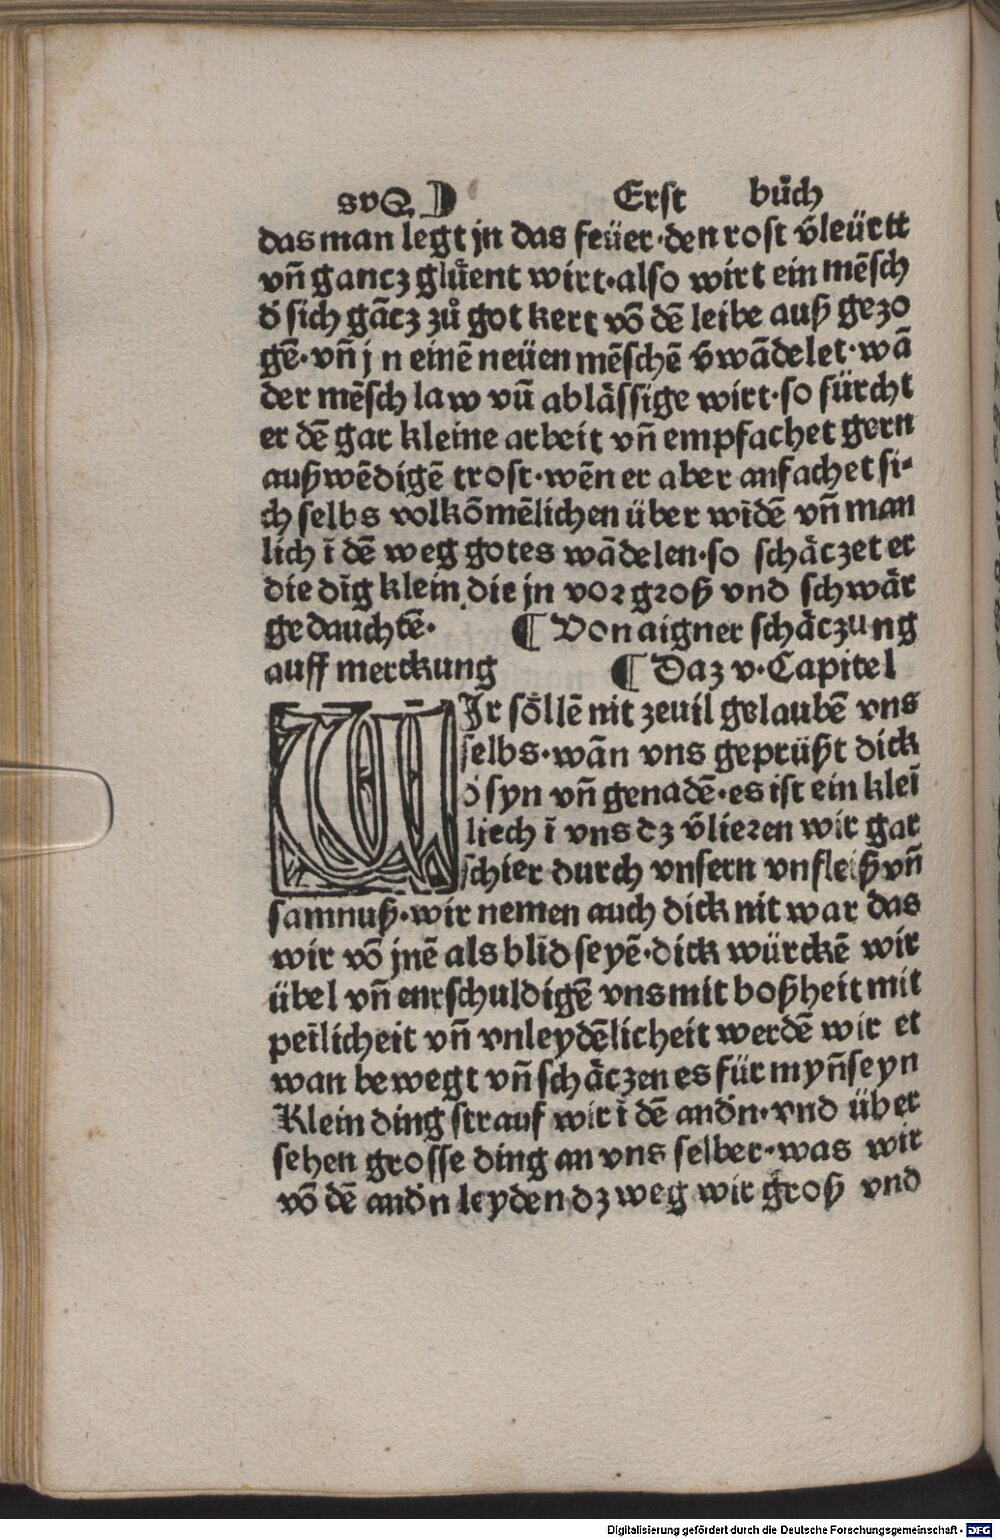 Erst bůch
das man legt jn das feüer·den rost v̄leürtt
vn̄ gancz glůent wirt·also wirt ein mēsch
d̕ sich gācz zů got kert vō dē leibe auß gezo
gē·vn̄ jn einē neüen mēschē v̄wādelet·wā
der mēsch law vn̄ ablässige wirt·so fürcht
er dē gar kleine arbeit vn̄ empfachet gern
außwēdigē trost·wēn er aber anfachet si⸗
ch selbs volkōmēlichen über wīdē vn̄ man
lich ī dē weg gotes wādelen·so schäczet er
die dīg klein.die jn vor groß vnd schwär
gedauchtē· ¶ Von aigner schäczung
auff merckung ¶ Daz v·Capitel
WJr söllē nit zeuil gelaubē vns
selbs·wān vns geprüßt dick
d̕ syn vn̄ genadē·es ist ein kleī
liech ī vns dz v̄lieren wir gar
schier durch vnsern vnfleiß vn̄
samnuß·wir nemen auch dick nit war das
wir vō jnē als blīd seyē·dick würckē wir
übel vn̄ enrschuldigē vns mit boßheit mit
peīlicheit vn̄ vnleydēlicheit werdē wir et
wan bewegt vn̄ schäczen es für myn̄seyn
Klein ding strauf wir ī dē andn̄·vnd über
sehen grosse ding an vns selber·was wir
vō dē andn̄ leyden dz weg wir groß vnd
Digitalisierung gefördert durch die Deutsche Forschungsgemeinschaft - DFG